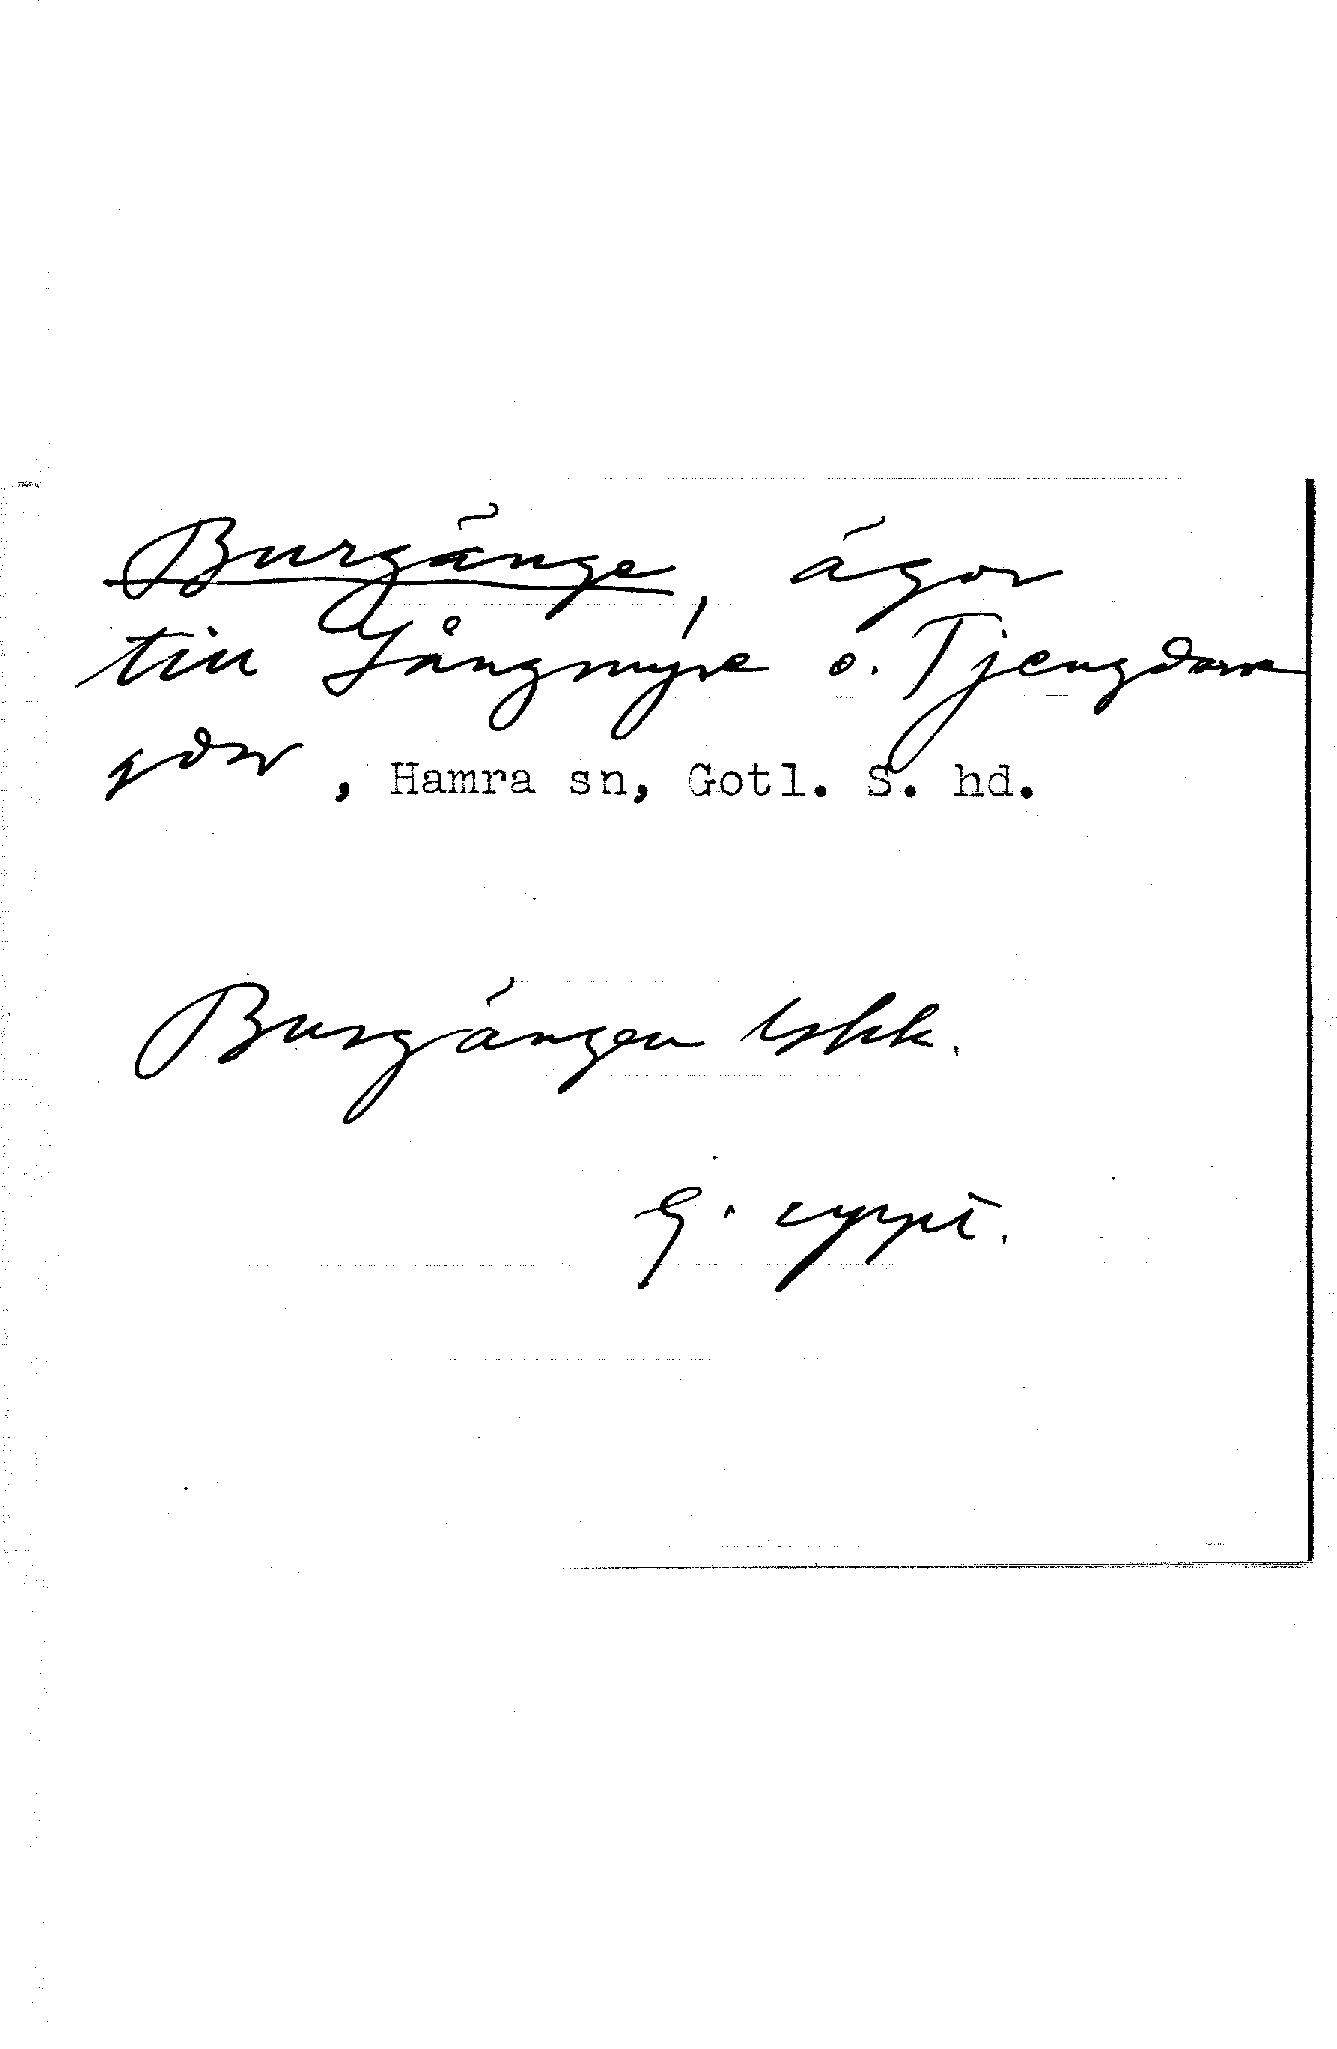 Burgänge, ägor
till Långmyre o. Tjengdarve
gdar, Hamra sn, Gotl. S. hd.
Burgängen Eskk.
G. uppt.